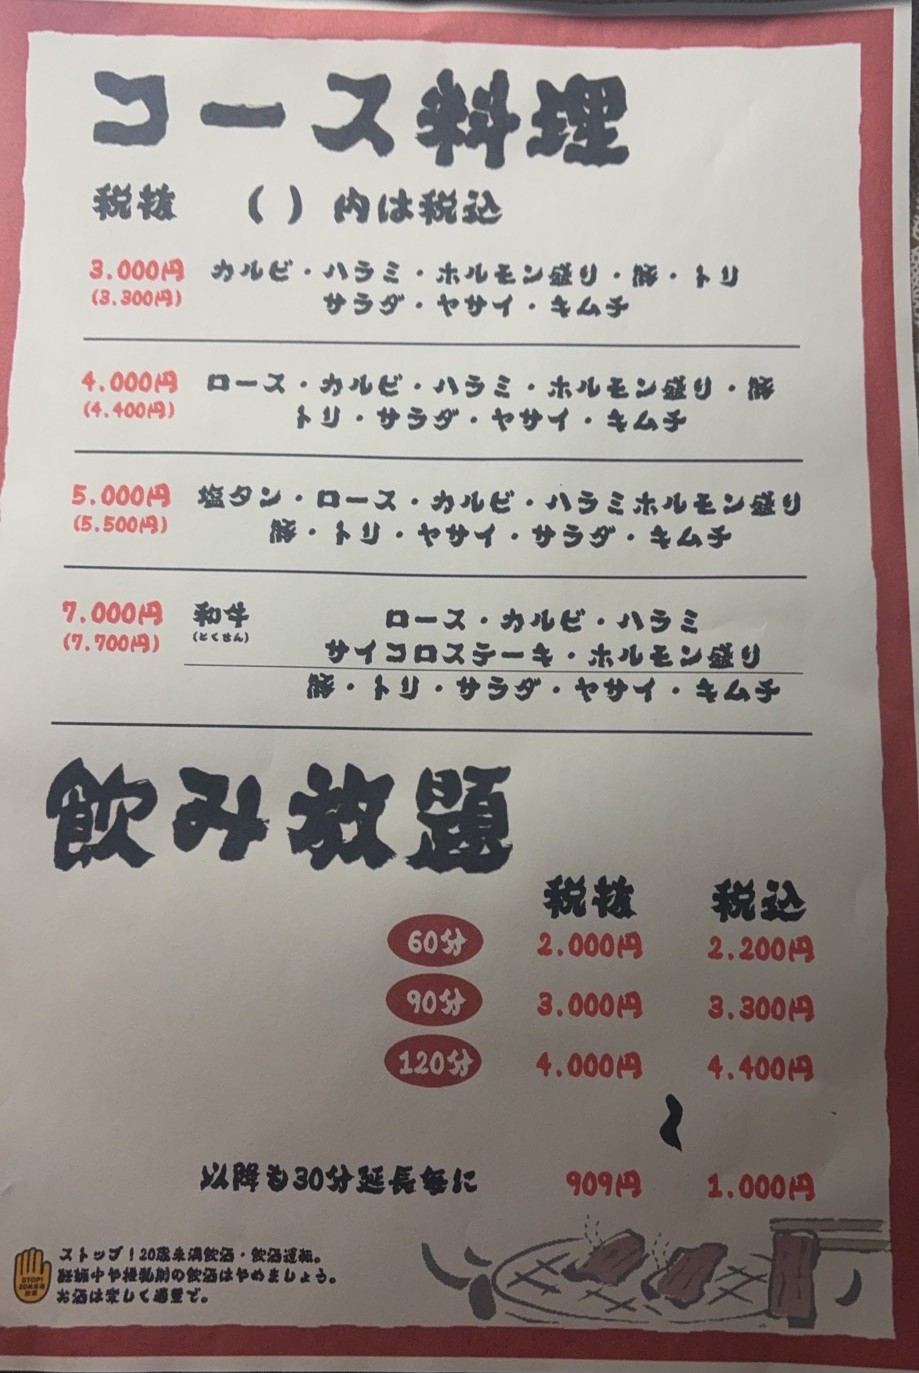 コース料理
税抜 ( ) 内は税込
3.000円 カルビ・ハラミ・ホルモン盛り・豚・トリ
(3.300円) サラダ・ヤサイ・キムチ
4.000円 ロース・カルビ・ハラミ・ホルモン盛り・豚
(4.400円) トリ・サラダ・ヤサイ・キムチ
5.000円 塩タン・ロース・カルビ・ハラミホルモン盛り
(5.500円) 豚・トリ・ヤサイ・サラダ・キムチ
7.000円 和牛 ロース・カルビ・ハラミ
(7.700円) (とくせん) サイコロステーキ・ホルモン盛り
豚・トリ・サラダ・ヤサイ・キムチ
飲み放題
税抜 税込
60分 2.000円 2.200円
90分 3.000円 3.300円
120分 4.000円 4.400円
〜
以降も30分延長毎に 909円 1.000円
ストップ！20歳未満飲酒・飲酒運転。
妊娠中や授乳期の飲酒はやめましょう。
お酒は楽しく適量で。
STOP!